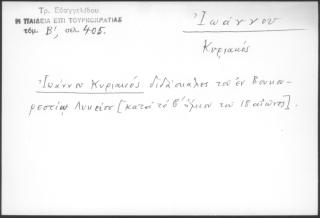 Τρ. Εὐαγγελίδου
Η ΠΑΙΔΕΙΑ ΕΠΙ ΤΟΥΡΚΟΚΡΑΤΙΑΣ
τόμ. Β', σελ. 405.
Ἰωάννου
Κυριακός
Ἰωάννου Κυριακός διδάσκαλος τοῦ ἐν Βουκου-
ρεστίῳ Λυκείου [κατὰ τὸ β' ἥμισυ τοῦ 18 αἰῶνος].